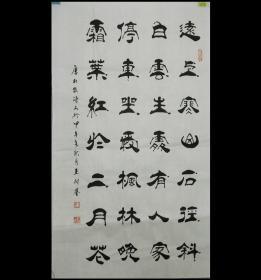 遠上寒山石徑斜
白雲生處有人家
停車坐愛楓林晚
霜葉紅於二月花
唐杜牧詩 甲午年秋月